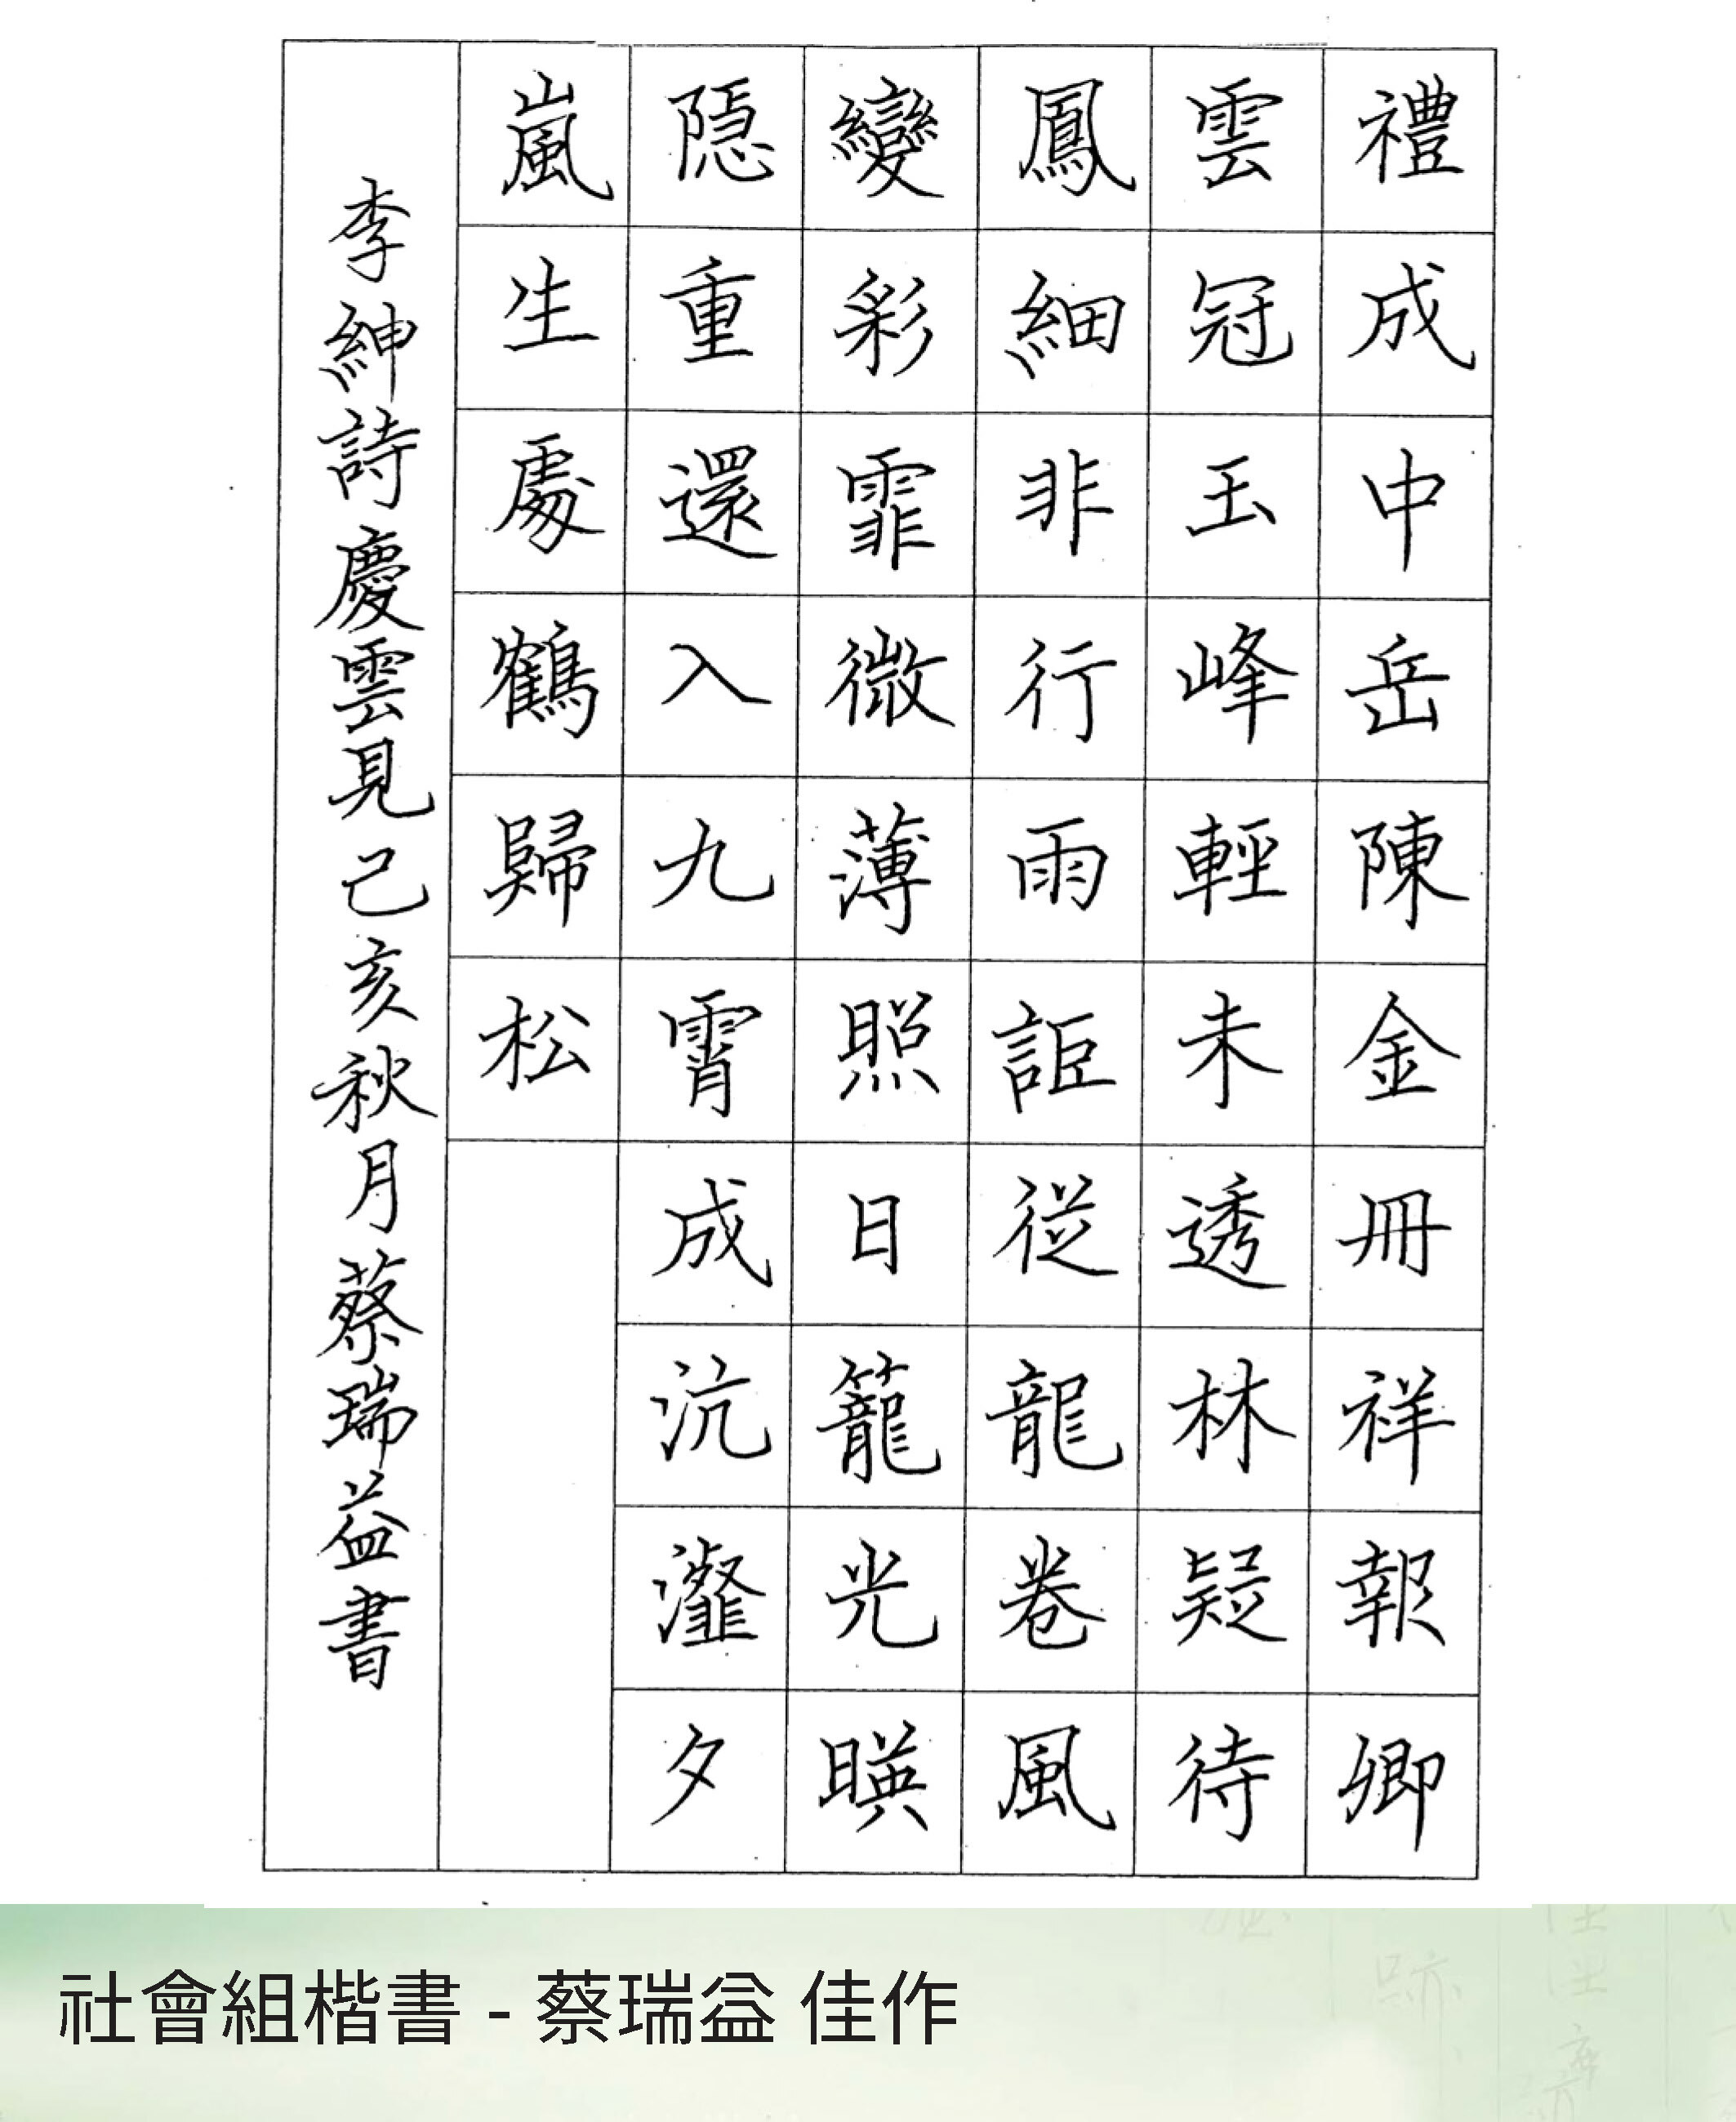 禮成中岳陳金冊祥報卿
雲冠玉峰輕未透林疑待
鳳細非行雨詎從龍卷風
變彩霏微薄照日籠光暎
隠重還入九霄成沆瀣夕
嵐生處鶴歸松
李紳詩慶雲見己亥秋月蔡瑞益書
社會組楷書 - 蔡瑞益 佳作